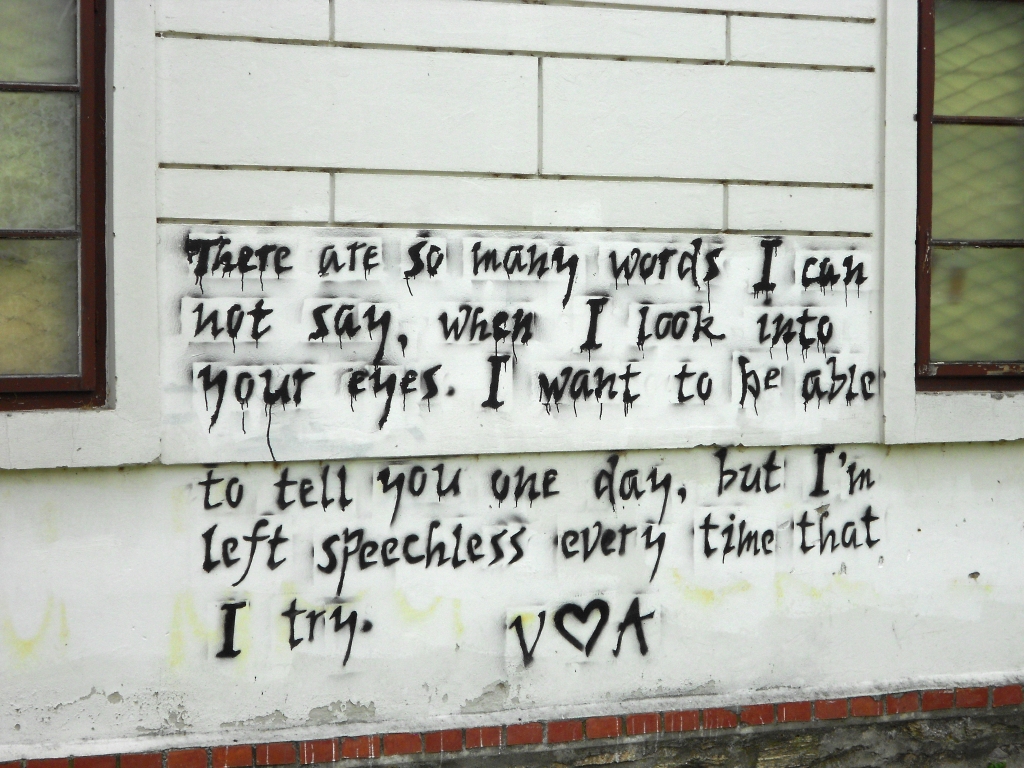 There are so many words I can
not say, when I look into
your eyes. I want to be able
to tell you one day, but I'm
left speechless every time that
I try. V♥A